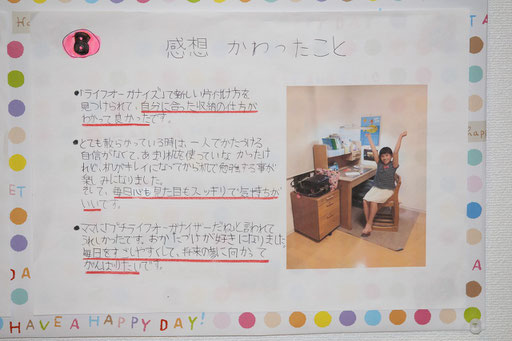 8
感想 かわったこと
●「ライフオーガナイズ」で新しい片付け方を
見つけられて、自分に合った収納の仕方が
わかって良かったです。
●とても散らかっている時は、一人でかたづける
自信がなくて、あまり机を使っていなかったけ
れど、机がキレイになってから机で勉強する事が
楽しみになりました。
そして、毎日心も見た目もスッキリで気持ちが
いいです。
●ママに「プチライフオーガナイザーだね」と言われて
うれしかったです。おかたづけが好きになりました。
毎日をすごしやすくして、将来の夢に向かって
がんばりたいです。
HAVE A HAPPY DAY!